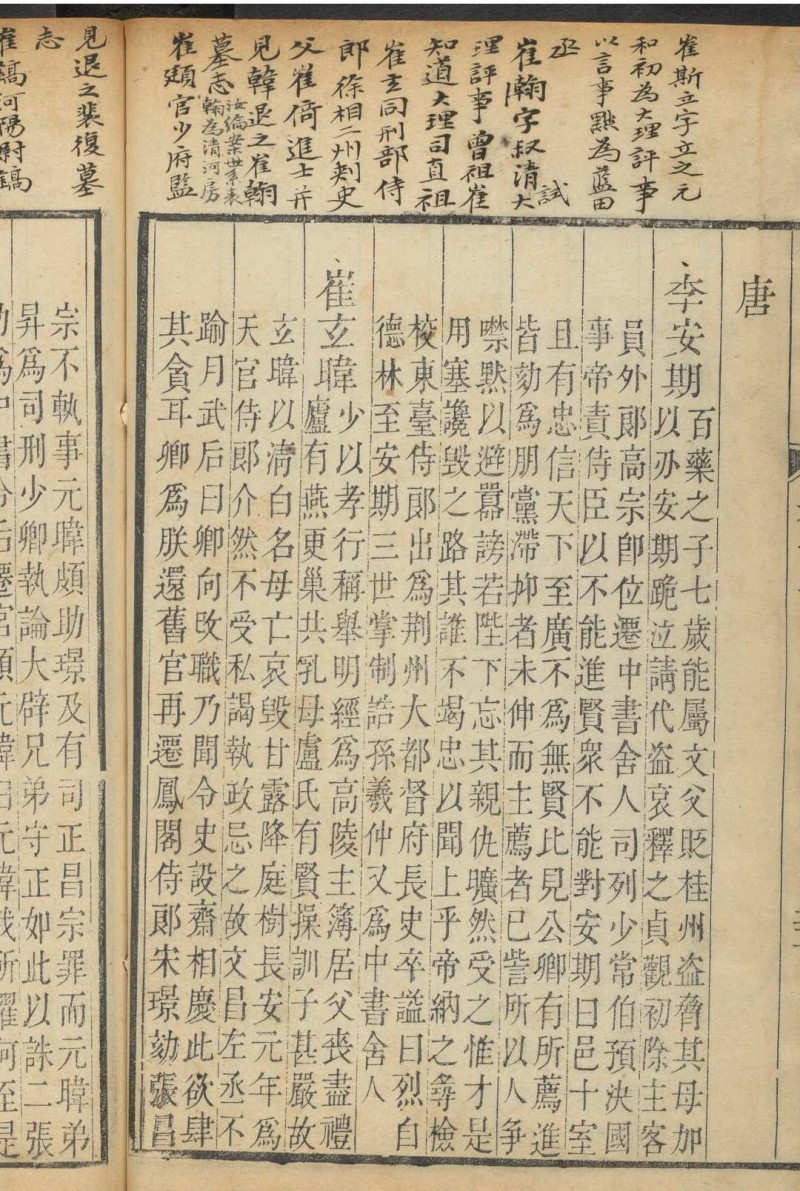 崔斯立字立之元
和初為大理評事
以言事黜為藍田
丞
崔翰字叔清大試
理評事曾祖崔
知道大理司直祖
崔玄同刑部侍
郎徐相二州刺史
父崔倚進士并
見韓退之崔翰
墓志
翰為清河房
崔頲官少府監
唐
李安期百藥之子七歲能屬文父貶桂州盜脅其母加
以刃安期跪泣請代盜哀釋之貞觀初除主客
員外郎高宗卽位遷中書舍人司列少常伯預決國
事帝責侍臣以不能進賢衆不能對安期曰邑十室
且有忠信天下至廣不爲無賢比見公卿有所薦進
皆劾爲朋黨滯抑者未伸而主薦者已訾所以人爭
噤默以避囂謗若陛下忘其親仇曠然受之惟才是
用塞讒毀之路其誰不竭忠以聞上乎帝納之尋檢
校東臺侍郎出爲荆州大都督府長史卒謚曰烈自
德林至安期三世掌制誥孫羲仲又爲中書舍人
崔玄暐少以孝行稱舉明經爲高陵主簿居父喪盡禮
廬有燕更巢共乳母盧氏有賢操訓子甚嚴故
玄暐以清白名母亡哀毀甘露降庭樹長安元年爲
天官侍郎介然不受私謁執政忌之故文昌左丞不
踰月武后曰卿向攺職乃聞令史設齋相慶此欲肆
其貪耳卿爲朕還舊官再遷鳳閣侍郎宋璟劾張昌
見退之裴復墓
志
崔鎬河陽尉鎬
宗不執事元暐頗助璟及有司正昌宗罪而元暐弟
昇爲司刑少卿執論大辟兄弟守正如此以誅二張